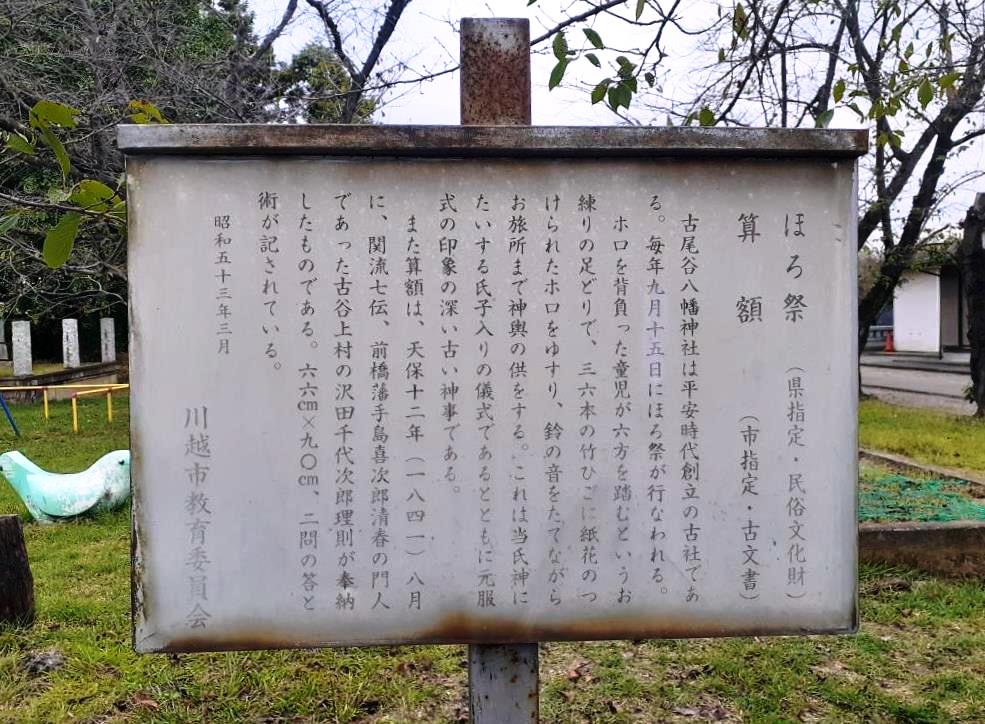 ほろ祭 （県指定・民俗文化財）
算額 （市指定・古文書）
古尾谷八幡神社は平安時代創立の古社であ
る。毎年九月十五日にほろ祭が行なわれる。
ホロを背負った童児が六方を踏むというお
練りの足どりで、三六本の竹ひごに紙花のつ
けられたホロをゆすり、鈴の音をたてながら
お旅所まで神輿の供をする。これは当氏神に
たいする氏子入りの儀式であるとともに元服
式の印象の深い古い神事である。
また算額は、天保十二年（一八四一）八月
に、関流七伝、前橋藩手島喜次郎清春の門人
であった古谷上村の沢田千代次郎理則が奉納
したものである。六六㎝×九〇㎝、二問の答と
術が記されている。
昭和五十三年三月
川越市教育委員会